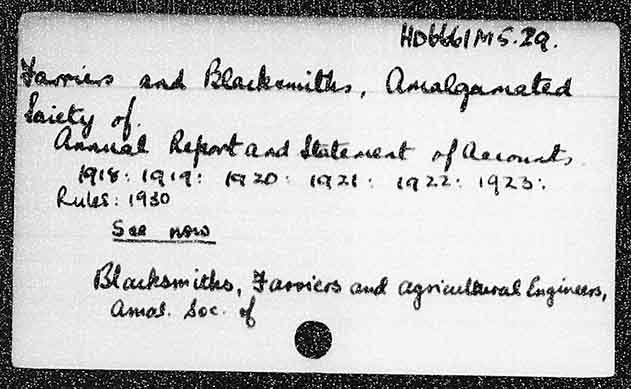 HD6661 M5.29.
Farriers and Blacksmiths, Amalgamated
Society of.
Annual Report and Statement of Accounts.
1918: 1919: 1920: 1921: 1922: 1923:
Rules: 1930
See now
Blacksmiths, Farriers and agricultural Engineers,
Amal. Soc. of